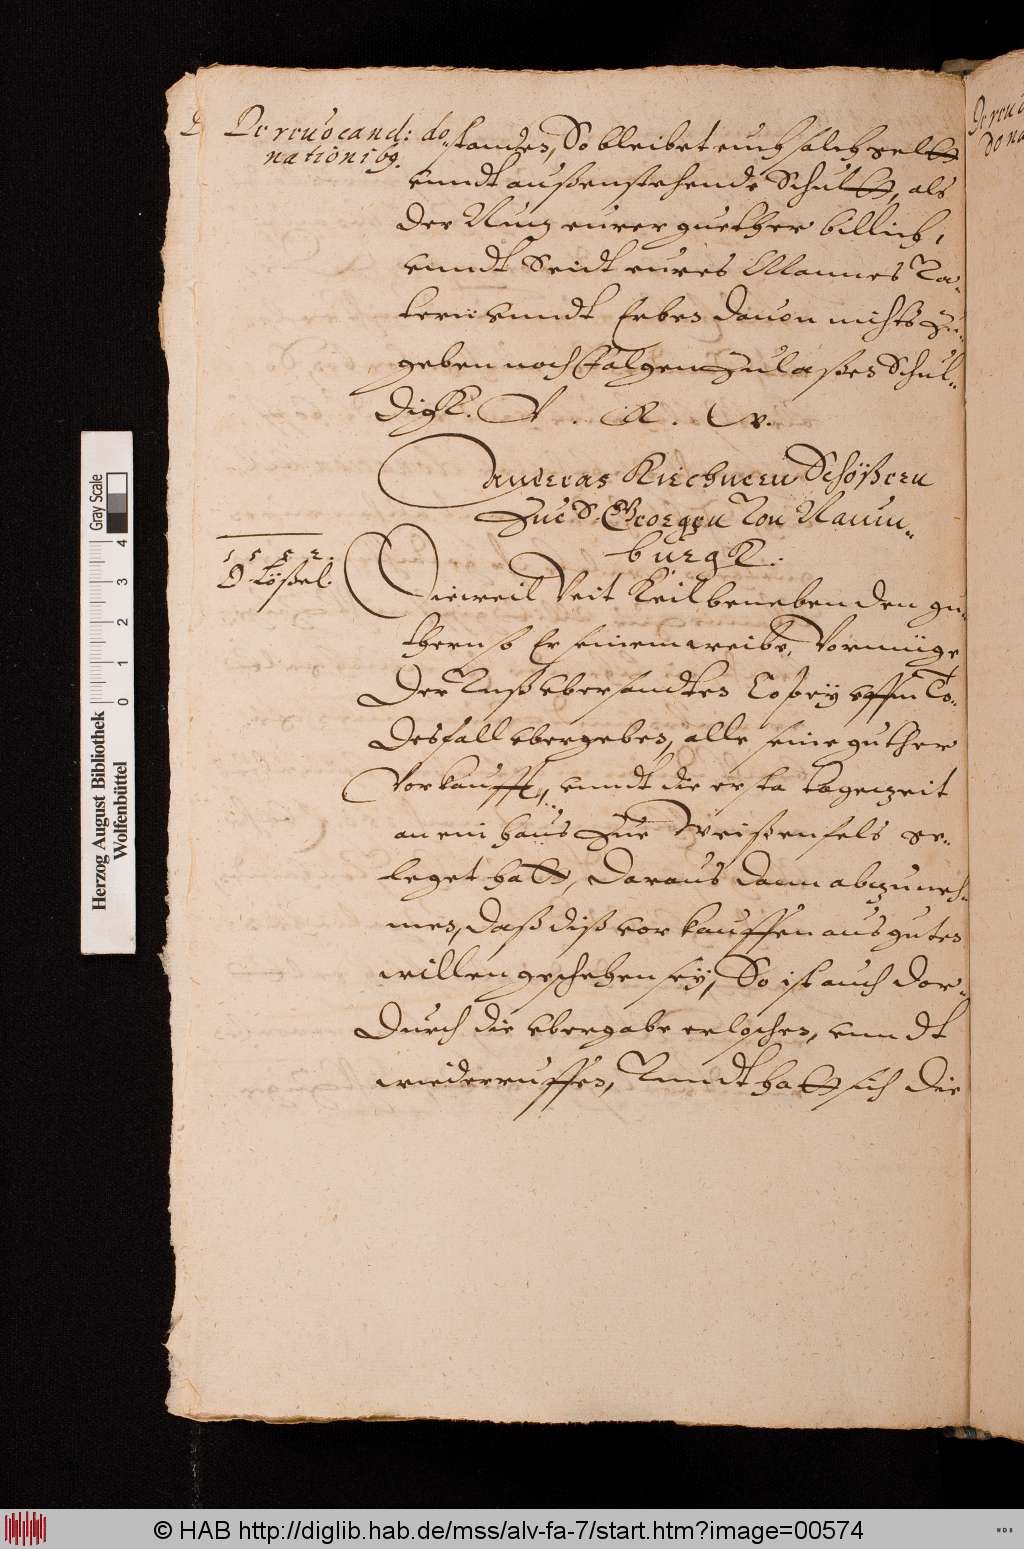 De reuocand: do-
nationib9.
standen, So bleibet euch solch gelt
unndt außenstehende Schult, als
der Nutz eurer guether billich,
unndt Seidt eures Mannes Va-
tern unndt Erben dauon nichts zu
geben noch folgen zulaßen Schul-
digk. V. R. W.
Andreas Kirchnern Schößern
Zue S. Georgen Von Naum-
burgk.
1552.
D Kößel.
Dieweil Veit Keil beneben den gu-
thern so Er seinem weibe, Vormüge
Der Uns ubersandten Copey uffm To-
desfall ubergeben, alle seine guther
Vorkaufft, unndt die erste tagezeit
an ein haus zue Weißenfels ge-
leget hatt, daraus dann abzuneh-
men, daß diß vorkauffen aus guten
willen geschehen sey, So ist auch dor-
durch die ubergabe erloschen, unndt
wiederruffen, Unndt hatt sich die
Herzog August Bibliothek
Wolfenbüttel
0 1 2 3 4
Gray Scale
© HAB http://diglib.hab.de/mss/alv-fa-7/start.htm?image=00574